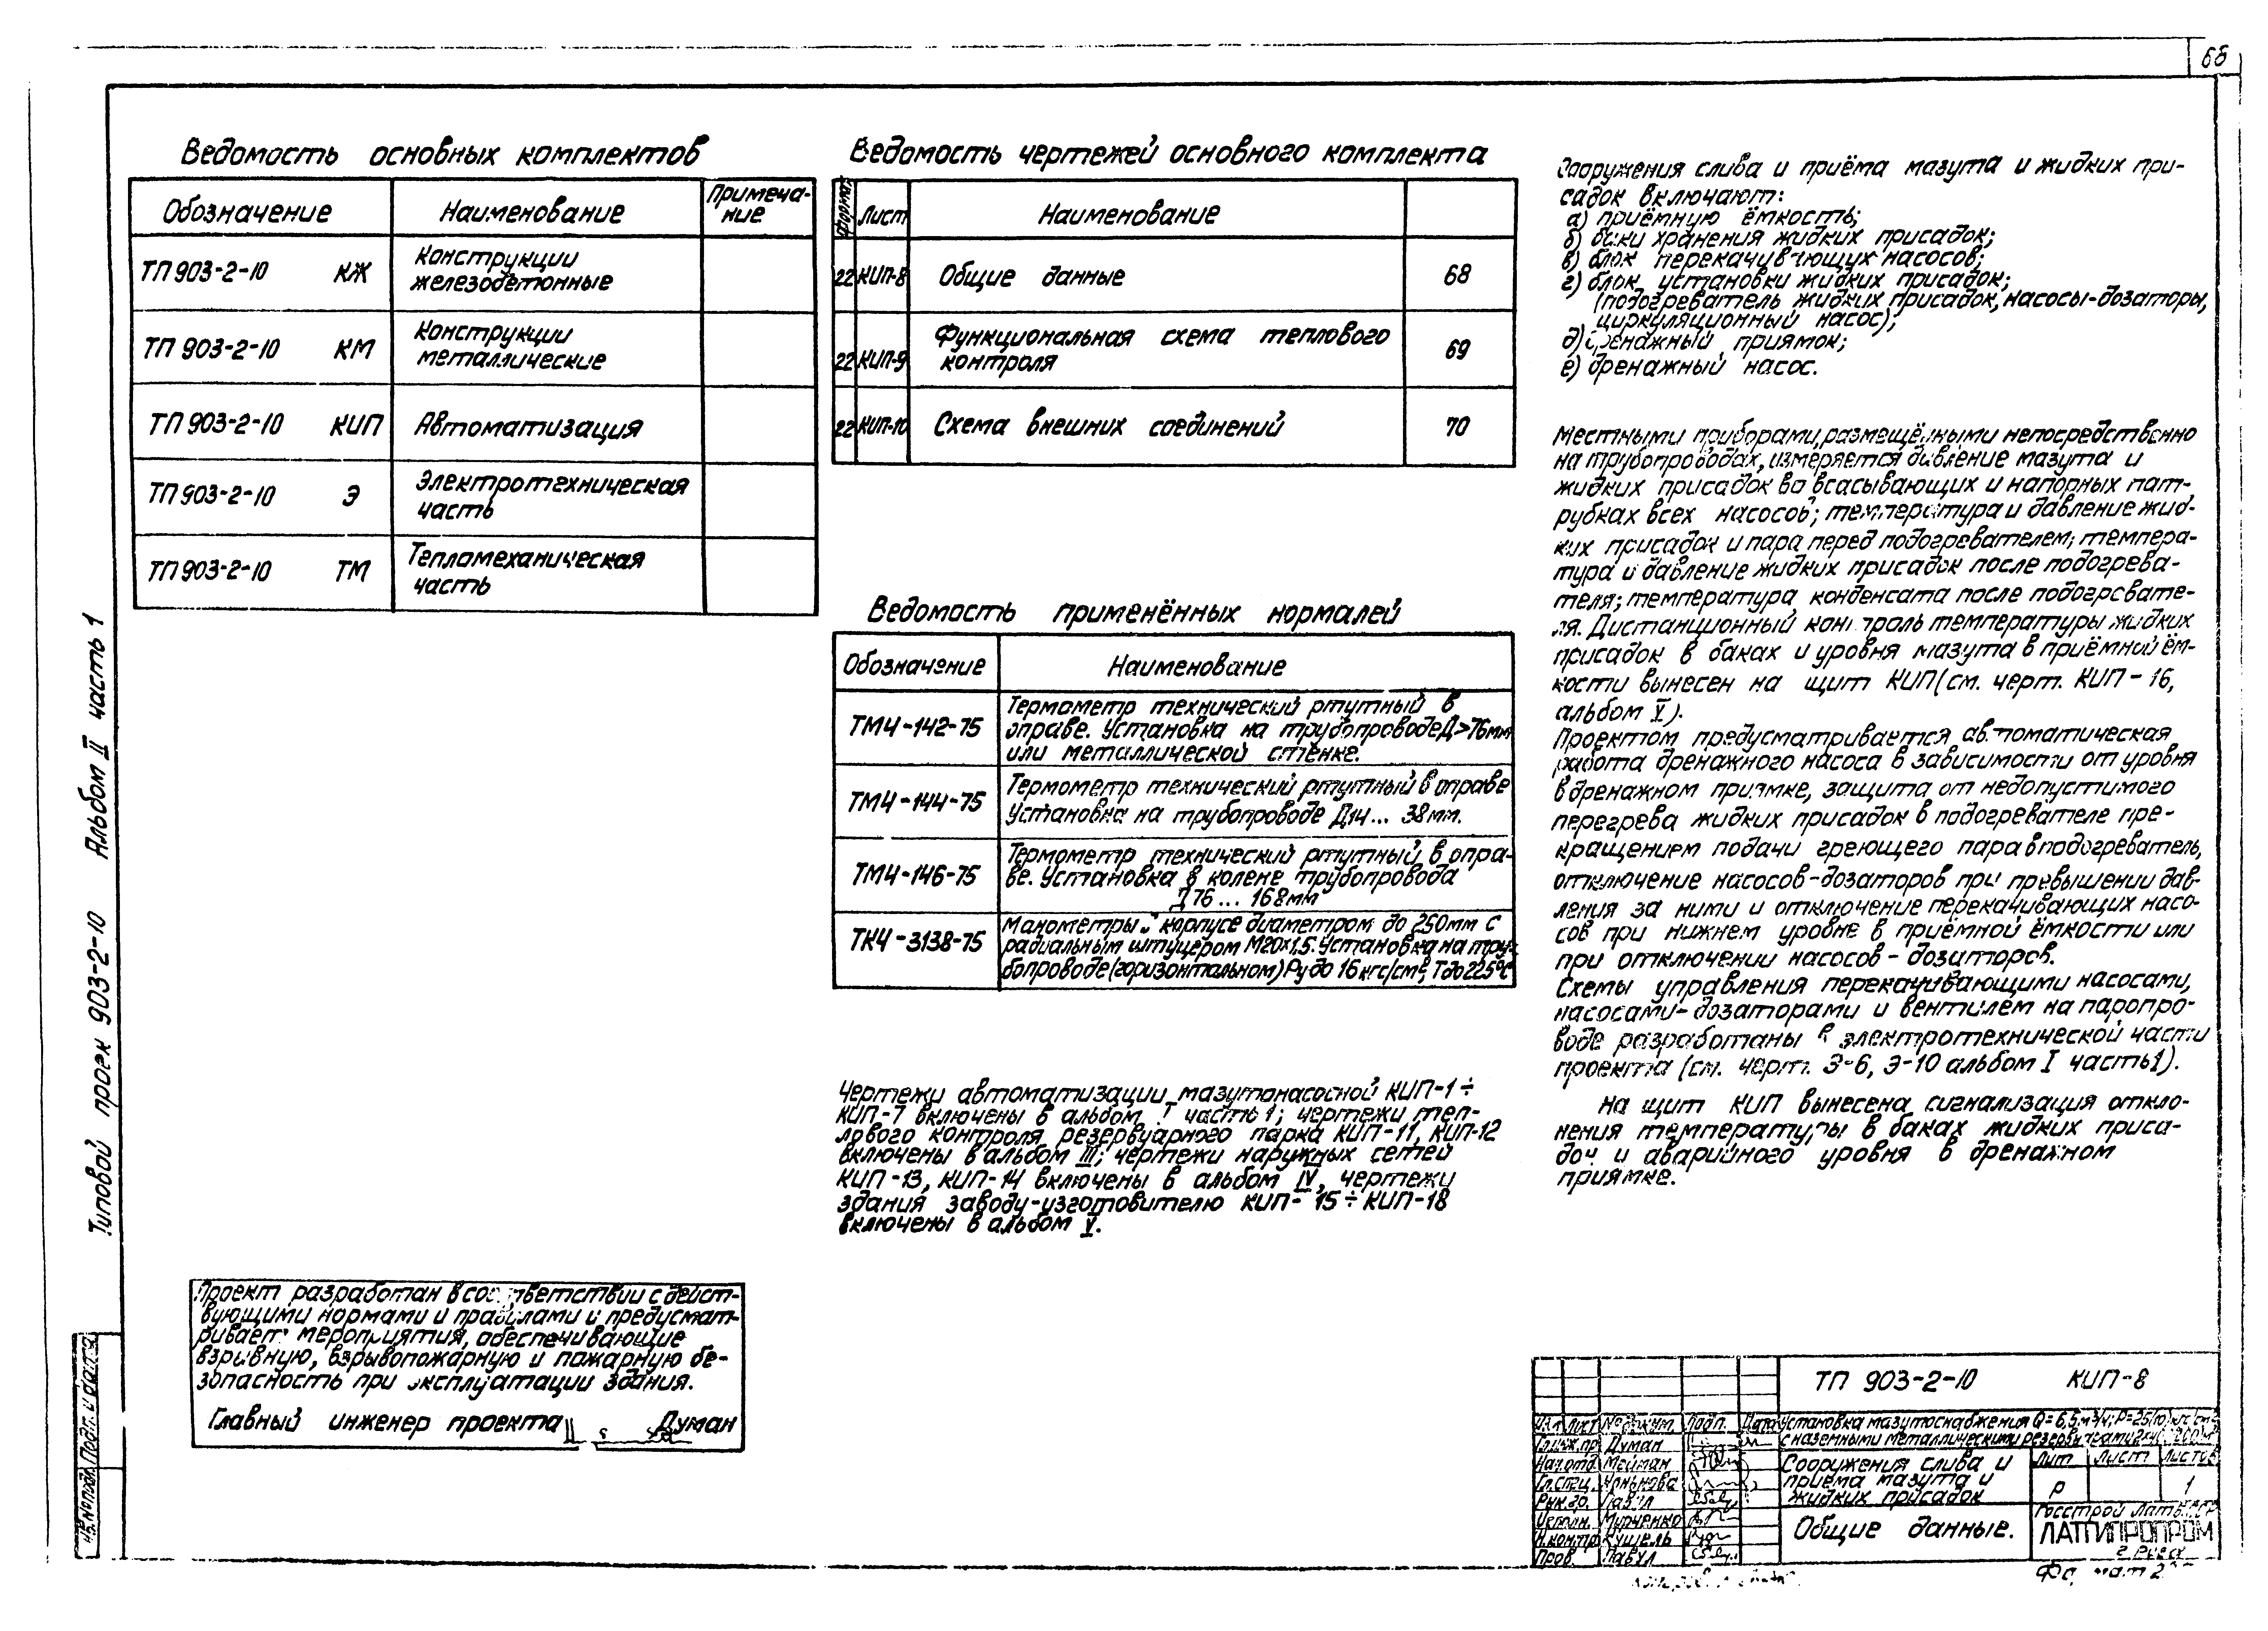 68
Ведомость основных комплектов
Обозначение Наименование Примеча-
ние
ТП 903-2-10 КЖ Конструкции
железобетонные
ТП 903-2-10 КМ Конструкции
металлические
ТП 903-2-10 КИП Автоматизация
ТП 903-2-10 Э Электротехническая
часть
ТП 903-2-10 ТМ Тепломеханическая
часть
Ведомость чертежей основного комплекта
Формат Лист Наименование
22 КИП-8 Общие данные 68
22 КИП-9 Функциональная схема теплового
контроля 69
22 КИП-10 Схема внешних соединений 70
Ведомость применённых нормалей
Обозначение Наименование
ТМ4-142-75 Термометр технический ртутный в
оправе. Установка на трубопроводе Д>76мм
или металлической стенке.
ТМ4-144-75 Термометр технический ртутный в оправе
Установка на трубопроводе Д14... 38мм.
ТМ4-146-75 Термометр технический ртутный в опра-
ве. Установка в колене трубопровода
Д76... 168мм
ТК4-3138-75 Манометры в корпусе диаметром до 250мм с
радиальным штуцером М20×1,5. Установка на тру-
бопроводе (горизонтальном) Ру до 16 кгс/см², Т до 225°С
Чертежи автоматизации мазутонасосной КИП-1÷
КИП-7 включены в альбом I часть 1; чертежи теп-
лового контроля резервуарного парка КИП-11, КИП-12
включены в альбом III; чертежи наружных сетей
КИП-13, КИП-14 включены в альбом IV, чертежи
здания заводу-изготовителю КИП-15÷КИП-18
включены в альбом V.
Сооружения слива и приёма мазута и жидких при-
садок включают:
а) приёмную ёмкость;
б) баки хранения жидких присадок;
в) блок перекачивающих насосов;
г) блок установки жидких присадок;
(подогреватель жидких присадок, насосы-дозаторы,
циркуляционный насос);
д) дренажный приямок;
е) дренажный насос.
Местными приборами, размещёнными непосредственно
на трубопроводах, измеряется давление мазута и
жидких присадок во всасывающих и напорных пат-
рубках всех насосов; температура и давление жид-
ких присадок и пара перед подогревателем; темпера-
тура и давление жидких присадок после подогрева-
теля; температура конденсата после подогревате-
ля. Дистанционный контроль температуры жидких
присадок в баках и уровня мазута в приёмной ём-
кости вынесен на щит КИП (см. черт. КИП-16,
альбом V).
Проектом предусматривается автоматическая
работа дренажного насоса в зависимости от уровня
в дренажном приямке, защита от недопустимого
перегрева жидких присадок в подогревателе пре-
кращением подачи греющего пара в подогреватель,
отключение насосов-дозаторов при превышении дав-
ления за ними и отключение перекачивающих насо-
сов при нижнем уровне в приёмной ёмкости или
при отключении насосов-дозаторов.
Схемы управления перекачивающими насосами,
насосами-дозаторами и вентилем на паропро-
воде разработаны в электротехнической части
проекта (см. черт. Э-6, Э-10 альбом I часть 1).
На щит КИП вынесена сигнализация откло-
нения температуры в баках жидких приса-
док и аварийного уровня в дренажном
приямке.
Типовой проек 903-2-10 Альбом II часть 1
Проект разработан в соответствии с дейст-
вующими нормами и правилами и предусмат-
ривает мероприятия, обеспечивающие
взрывную, взрывопожарную и пожарную бе-
зопасность при эксплуатации здания.
Главный инженер проекта Думан
Инв.№ подл. Подп. и дата
ТП 903-2-10 КИП-8
Изм. Лист № докум. Подп. Дата
Установка мазутоснабжения Q=6,5 м³/ч; Р=25
с наземными металлическими
Гл.инж.пр Думан
Нач.отд. Мейман
Гл.спец.
Рук.гр. Павул
Исполн. Мурченко
Н.контр. Кушель
Пров. Павул
Сооружения слива и
приёма мазута и
жидких присадок
Лит Лист Листов
Р 1
Общие данные.
Госстрой Латв.ССР
ЛАТГИПРОПРОМ
г. Рига
Формат 22